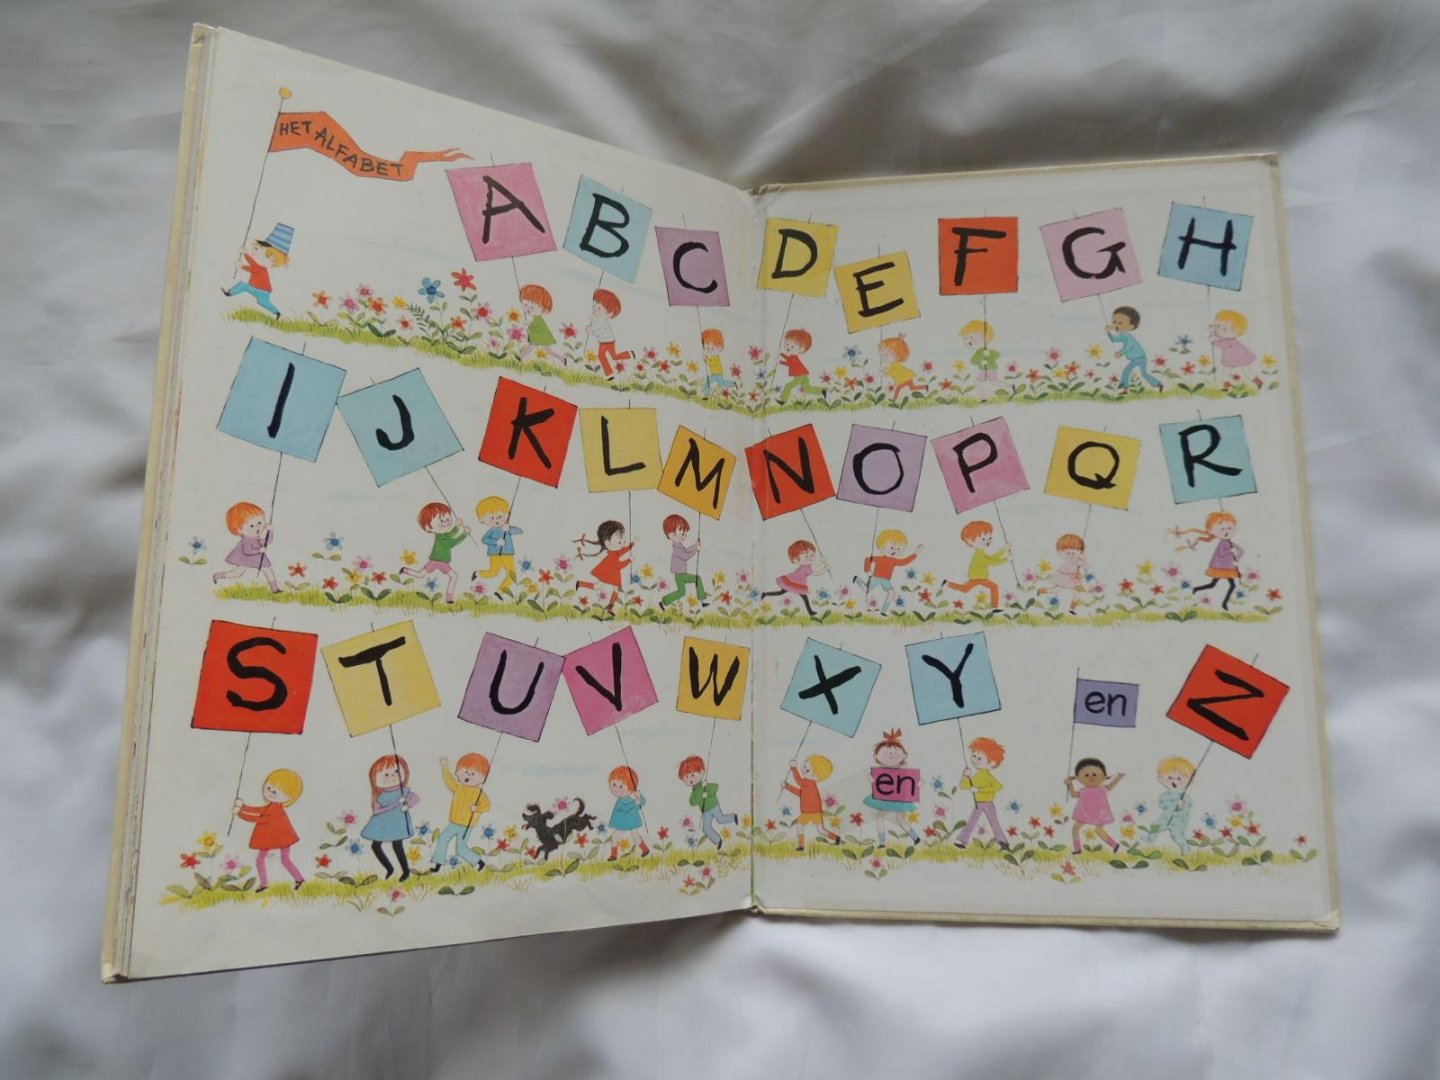 HET ALFABET
A B C D E F G H
I J K L M N O P Q R
S T U V W X en Y en Z